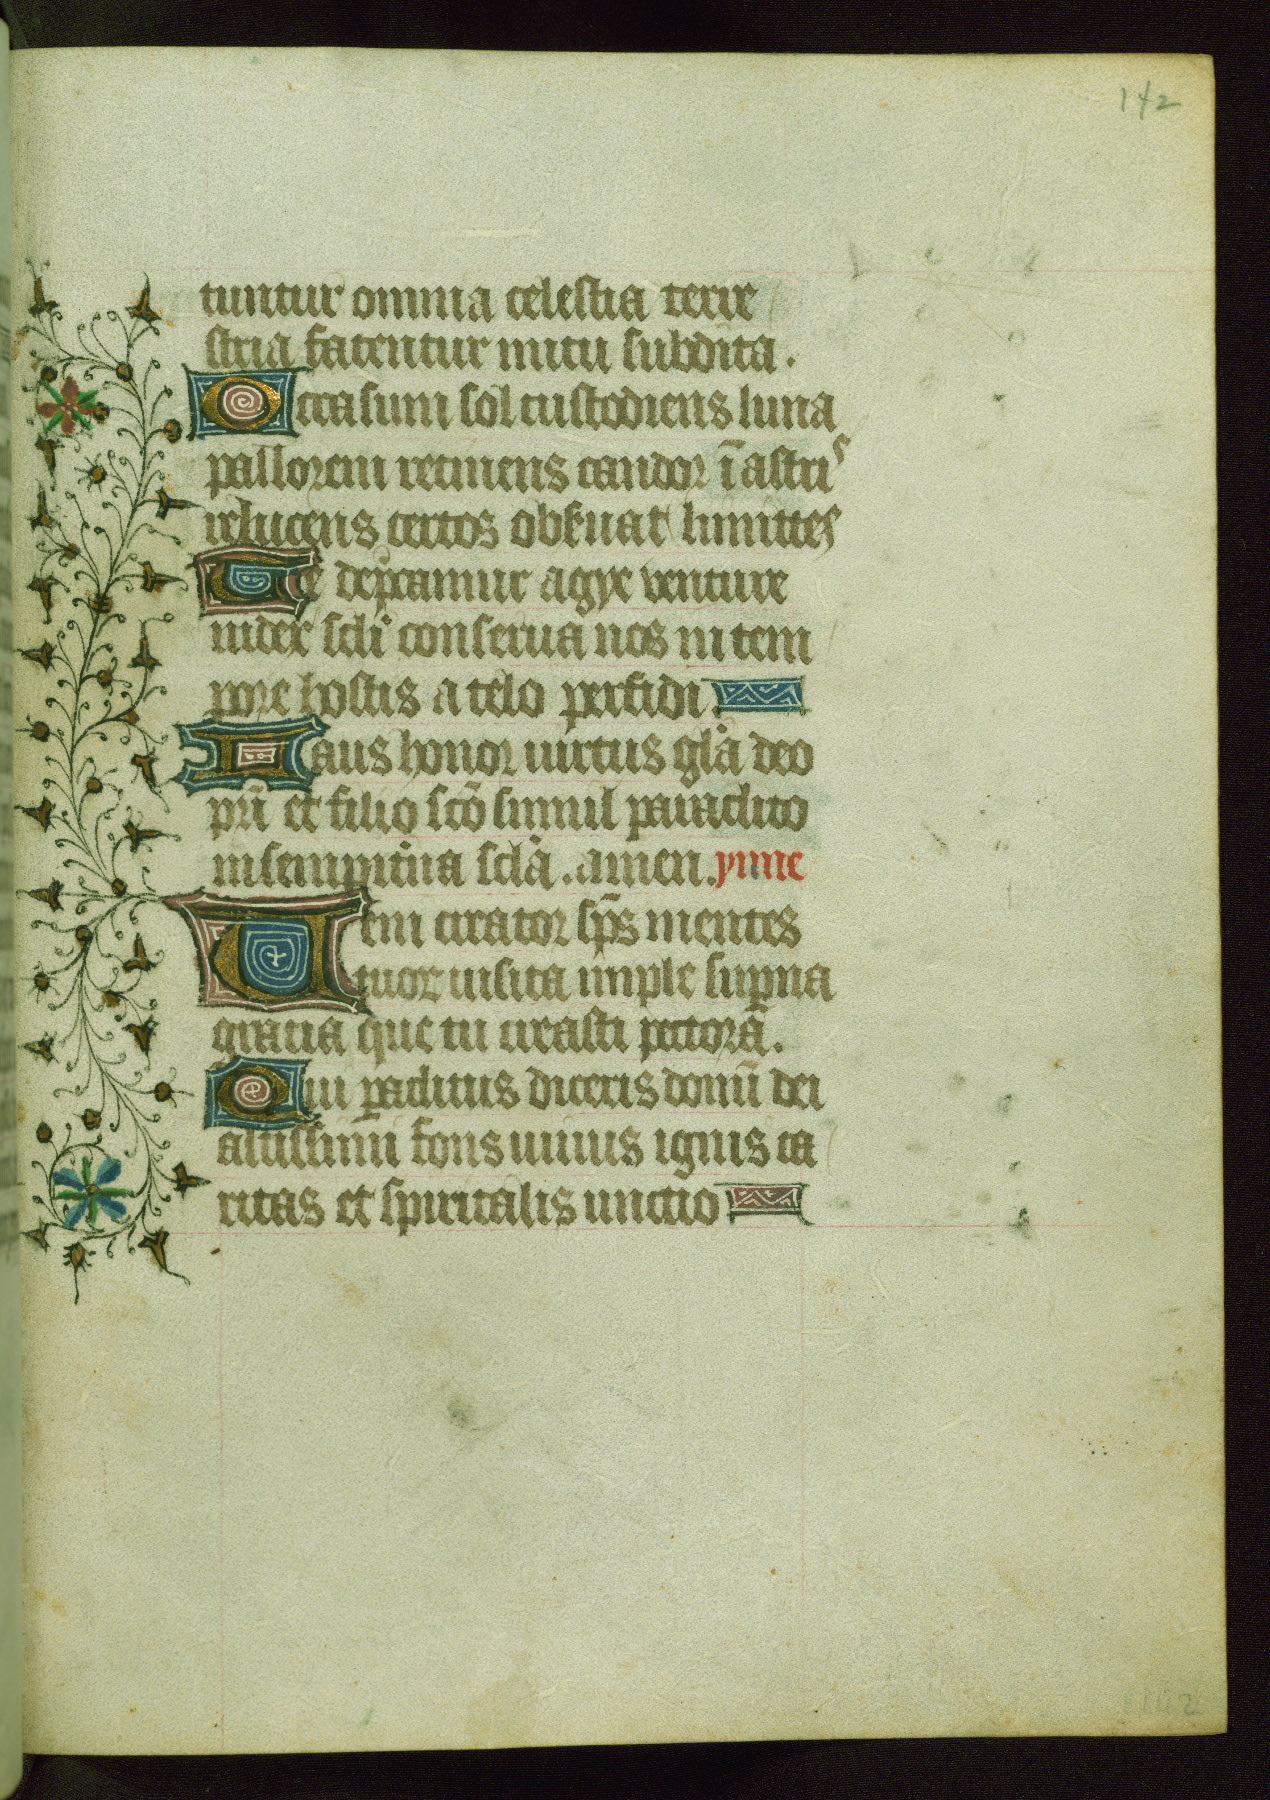 142
tuntur omnia celestia terre
stria fatentur nutu subdita.
Occasum sol custodiens luna
pallorem retinens candor ī astris
relucens certos obseruat limittes
Te dep̄camur agye venture
iudex scl̄i conserua nos in tem
pore hostis a telo perfidi
Laus honor uirtus gl̄a deo
pr̄i et filio scō simul paraclito
in sempit̄na scl̄a . amen . ymne
Veni creator sp̄s mentes
tuor uisita imple sup̄na
gratia que tu creasti pectora.
Qui p̄aclitus diceris donū dei
altissimi fons uiuus ignis ca
ritas et spiritalis unctio